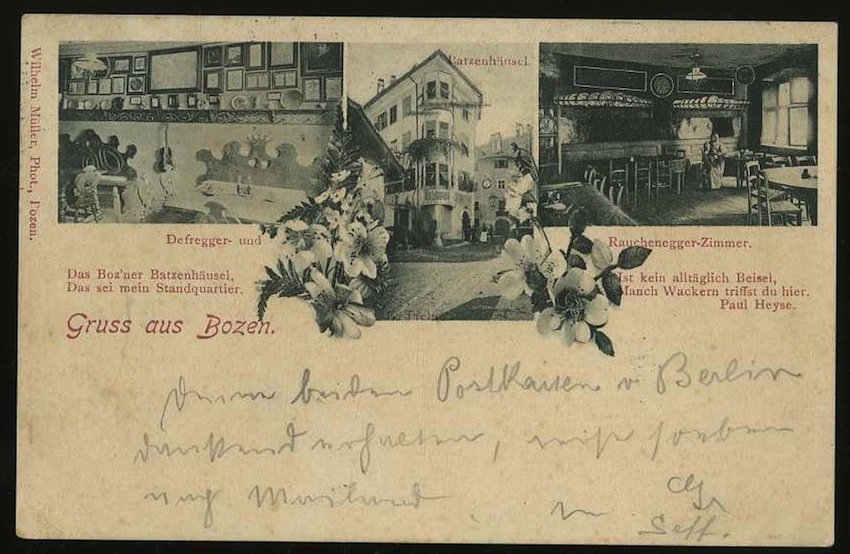 Wilhelm Müller, Phot., Bozen.
Batzenhäusel.
Defregger- und
Rauchenegger-Zimmer.
Das Boz'ner Batzenhäusel,
Das sei mein Standquartier.
Ist kein alltäglich Beisel,
Manch Wackern triffst du hier.
Paul Heyse.
Gruss aus Bozen.
Deine beiden Postkarten v Berlin
dankend erhalten, reise soeben
nach Mailand